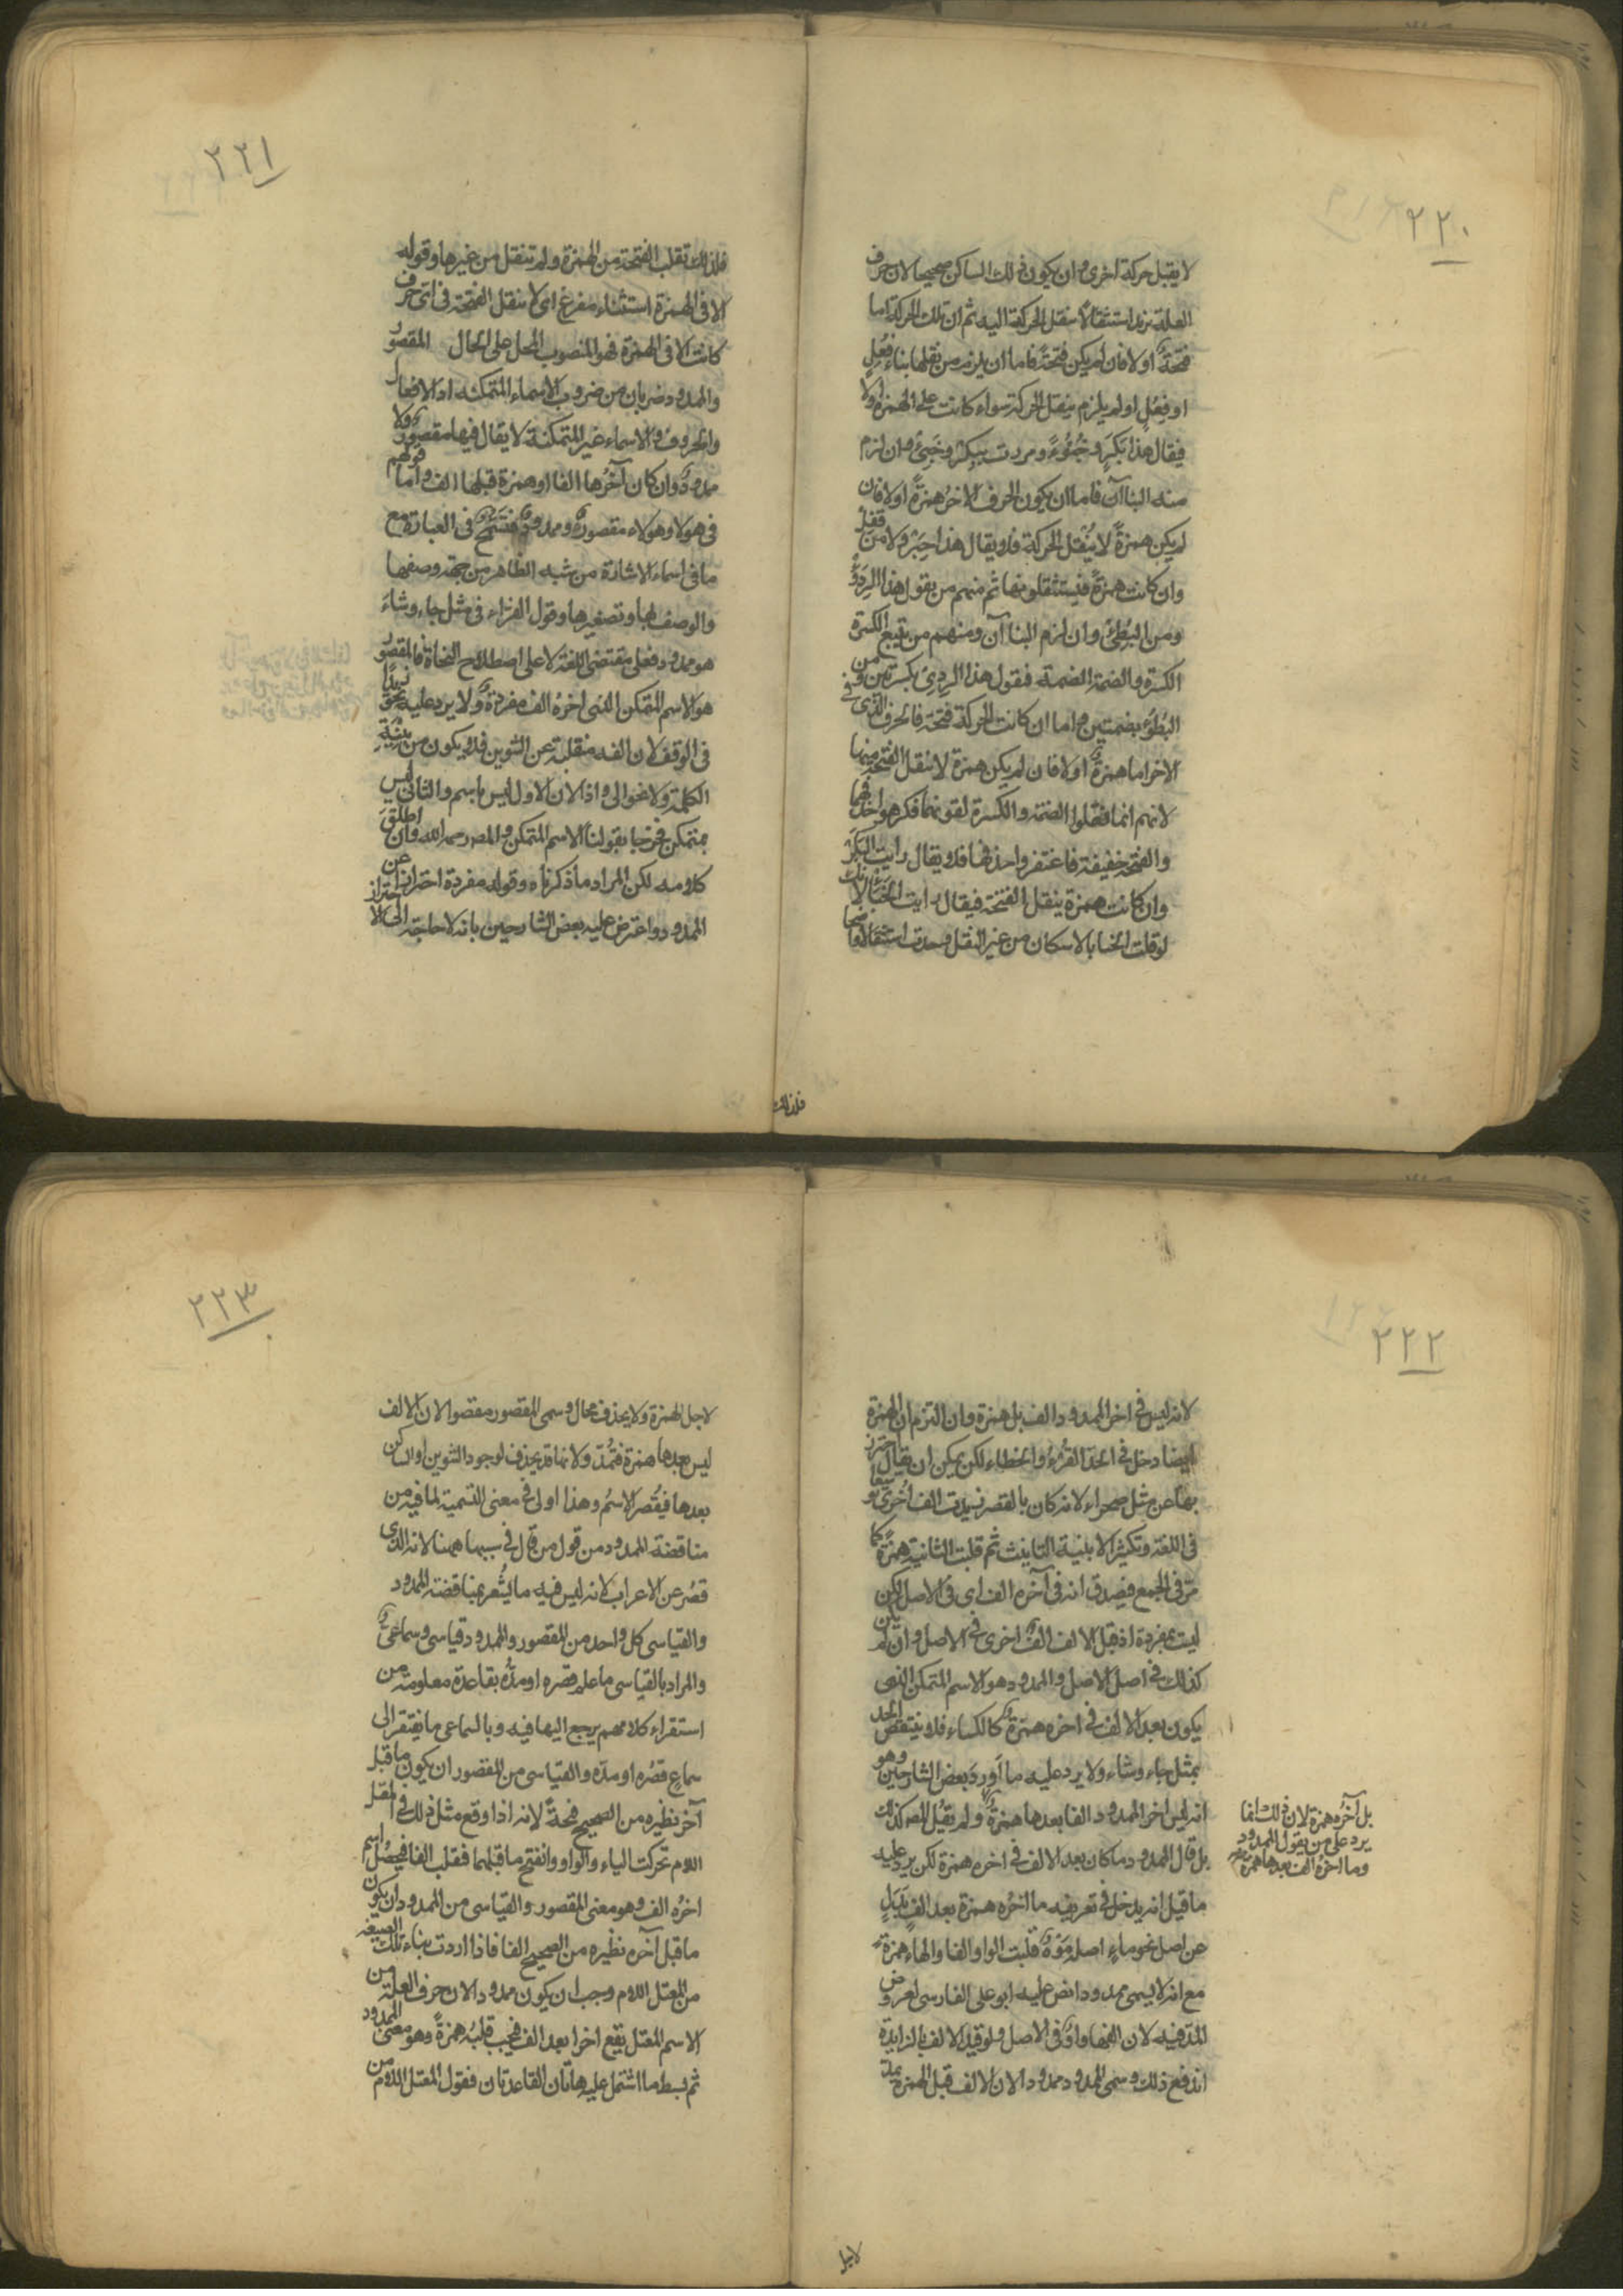 ٢٢٠
لا يقبل حركة اخرى وان يكون ذلك الساكن صحيحا لان حرف
العلة يزيد استثقالا بنقل الحركة اليه ثم ان تلك الحركة اما
فتحة او لا فان لم يكن فتحة فاما ان يلزم من نقلها بناء فُعِل
او فِعُل او لم يلزم ينقل الحركة سواء كانت على الهمزة او لا
فيقال هذا بَكُر وخَبُؤ ومررت ببكِر وخَبِئ وان لزم
منه البناآن فاما ان يكون الحرف الاخر همزة او لا فان
لم يكن همزة لا يُنقل الحركة فلا يقال هذا حِبُر ولا من قُفِل
وان كانت همزة فيستثقلونها ثم منهم من يقول هذا الرِدُؤُ
ومن البُطِئ وان لزم البناآن ومنهم من يتبع الكسرة
الكسرة والضمة الضمة فيقول هذا الرِدِئ بكسرتين ومن
البُطُؤ بضمتين واما ان كانت الحركة فتحة فالحرف الذى فى
الاخر اما همزة او لا فان لم يكن همزة لا ينقل الفتحة منها
لانهم انما نقلوا الضمة والكسرة لقوتهما فكرهوا حذفهما
والفتحة خفيفة فاغتفروا حذفها فلا يقال رايت البَكَر
وان كانت همزة ينقل الفتحة فيقال رايت الخَبَأ لانك
لو قلت الخبأ بالاسكان من غير النقل وجدت استثقالا واضحا
فلذلك
٢٢١
فلذلك تقلب الفتحة من الهمزة ولم تنقل من غيرها وقوله
الا فى الهمزة استثناء مفرغ اى لا ينقل الفتحة فى اى حرف
كانت الا فى الهمزة فهو المنصوب المحل على الحال المقصور
والممدود ضربان من ضروب الاسماء المتمكنة اذ الافعال
والحروف والاسماء غير المتمكنة لا يقال فيها مقصور ولا
ممدود وان كان آخرها الفا او همزة قبلها الف واما قولهم
فى هولا وهولاء مقصور وممدود فتسَمُّح فى العبارة مع
ما فى اسماء الاشارة من شبه الظاهر من جهة وصفها
والوصف بها وتصغيرها وقول القراء فى مثل جاء وشاء
هو ممدود فعلى مقتضى اللغة لا على اصطلاح النحاة فالمقصور
هو الاسم المتمكن الذى اخره الف مفردة ولا يرد عليه نحو زيدًا
فى الوقف لان الفه منقلبة عن التنوين فلا يكون من بِنْيَة
الكلمة ولا نحو الى واذا لان الاول ليس باسم والثانى ليس
بمتمكن فخرجا بقولنا الاسم المتمكن والمص رحمه الله وان اطلق
كلامه لكن المراد ما ذكرناه وقوله مفردة احتراز عن
الممدود واعترض عليه بعض الشارحين بانه لا حاجة الى الاحتراز
٢٢٢
لانه ليس فى اخر الممدود الف بل همزة وان التزم ان الهمزة
ايضا دخل فى الحد القُرْء والخطاء لكن يمكن ان يقال احترز
بها عن مثل صحراء لانه كان بالقصر زيدت الف اخرى توسعا
فى اللغة وتكثيرا لابنية التانيث ثم قلبت الثانية همزة كما
مر فى الجمع فيصدق انه فى آخره الف اى فى الاصل لكن
ليست بمفردة اذ قبل الالف الف اخرى فى الاصل وان لم تكن
كذلك فى اصل الاصل والممدود هو الاسم المتمكن الذى
يكون بعد الالف فى اخره همزة كالكساء فلا ينتقض الحد
بمثل جاء وشاء ولا يرد عليه ما اورد بعض الشارحين وهو
انه ليس اخر الممدود الفا بعدها همزة ولم يقل المص كذلك
بل قال الممدود ما كان بعد الالف فى اخره همزة لكن يرد عليه
ما قيل انه يدخل فى تعريفه ما اخره همزة بعد الف بدل
عن اصل نحو ماء اصله مَوَهٌ قلبت الواو الفا والهاء همزة
مع انه لا يسمى ممدودا نص عليه ابو على الفارسى لعروض
المد فيه لان الفها واو فى الاصل ولو قيد الالف بالزايدة
اندفع ذلك وسمى الممدود ممدودا لان الالف قبل الهمزة يمد
بل آخره همزة لان ذلك انما
يرد على من يقول الممدود
وما اخره الف بعدها همزة
لاجل
٢٢٣
لاجل الهمزة ولا يحذف بحال وسمى المقصور مقصورا لان الالف
ليس بعدها همزة فتُمَدّ ولانها قد يحذف لوجود التنوين او الساكن
بعدها فيُقصر الاسمُ وهذا اولى فى معنى التسمية لما فيه من
مناقضة الممدود من قول من قال فى سببها ههنا لانه الذى
قُصر عن الاعراب لانه ليس فيه ما يُشعر بمناقضته الممدود
والقياسى كل واحد من المقصور والممدود قياسى وسماعى
والمراد بالقياسى ما علم قصره او مَدُّه بقاعدة معلومة من
استقراء كلامهم يرجع اليها فيه وبالسماعى ما يفتقر الى
سماعِ قصْره او مدّه والقياسى من المقصور ان يكون ما قبل
آخر نظيره من الصحيح فتحة لانه اذا وقع مثل ذلك فى المعتل
اللام تحركت الياء والواو وانفتح ما قبلهما فقلب الفا فيحصُل اسم
اخره الف وهو معنى المقصور والقياسى من الممدود ان يكون
ما قبل آخره نظيره من الصحيح الفا فاذا اردت بناء تلك الصيغه
من المعتل اللام وجب ان يكون ممدودا لان حرف العلة من
الاسم المعتل يقع اخرا بعد الف فيجب قلبُه همزة وهو معنى الممدود
ثم بسط ما اشتمل عليه هاتان القاعدتان فقول المعتل اللام من